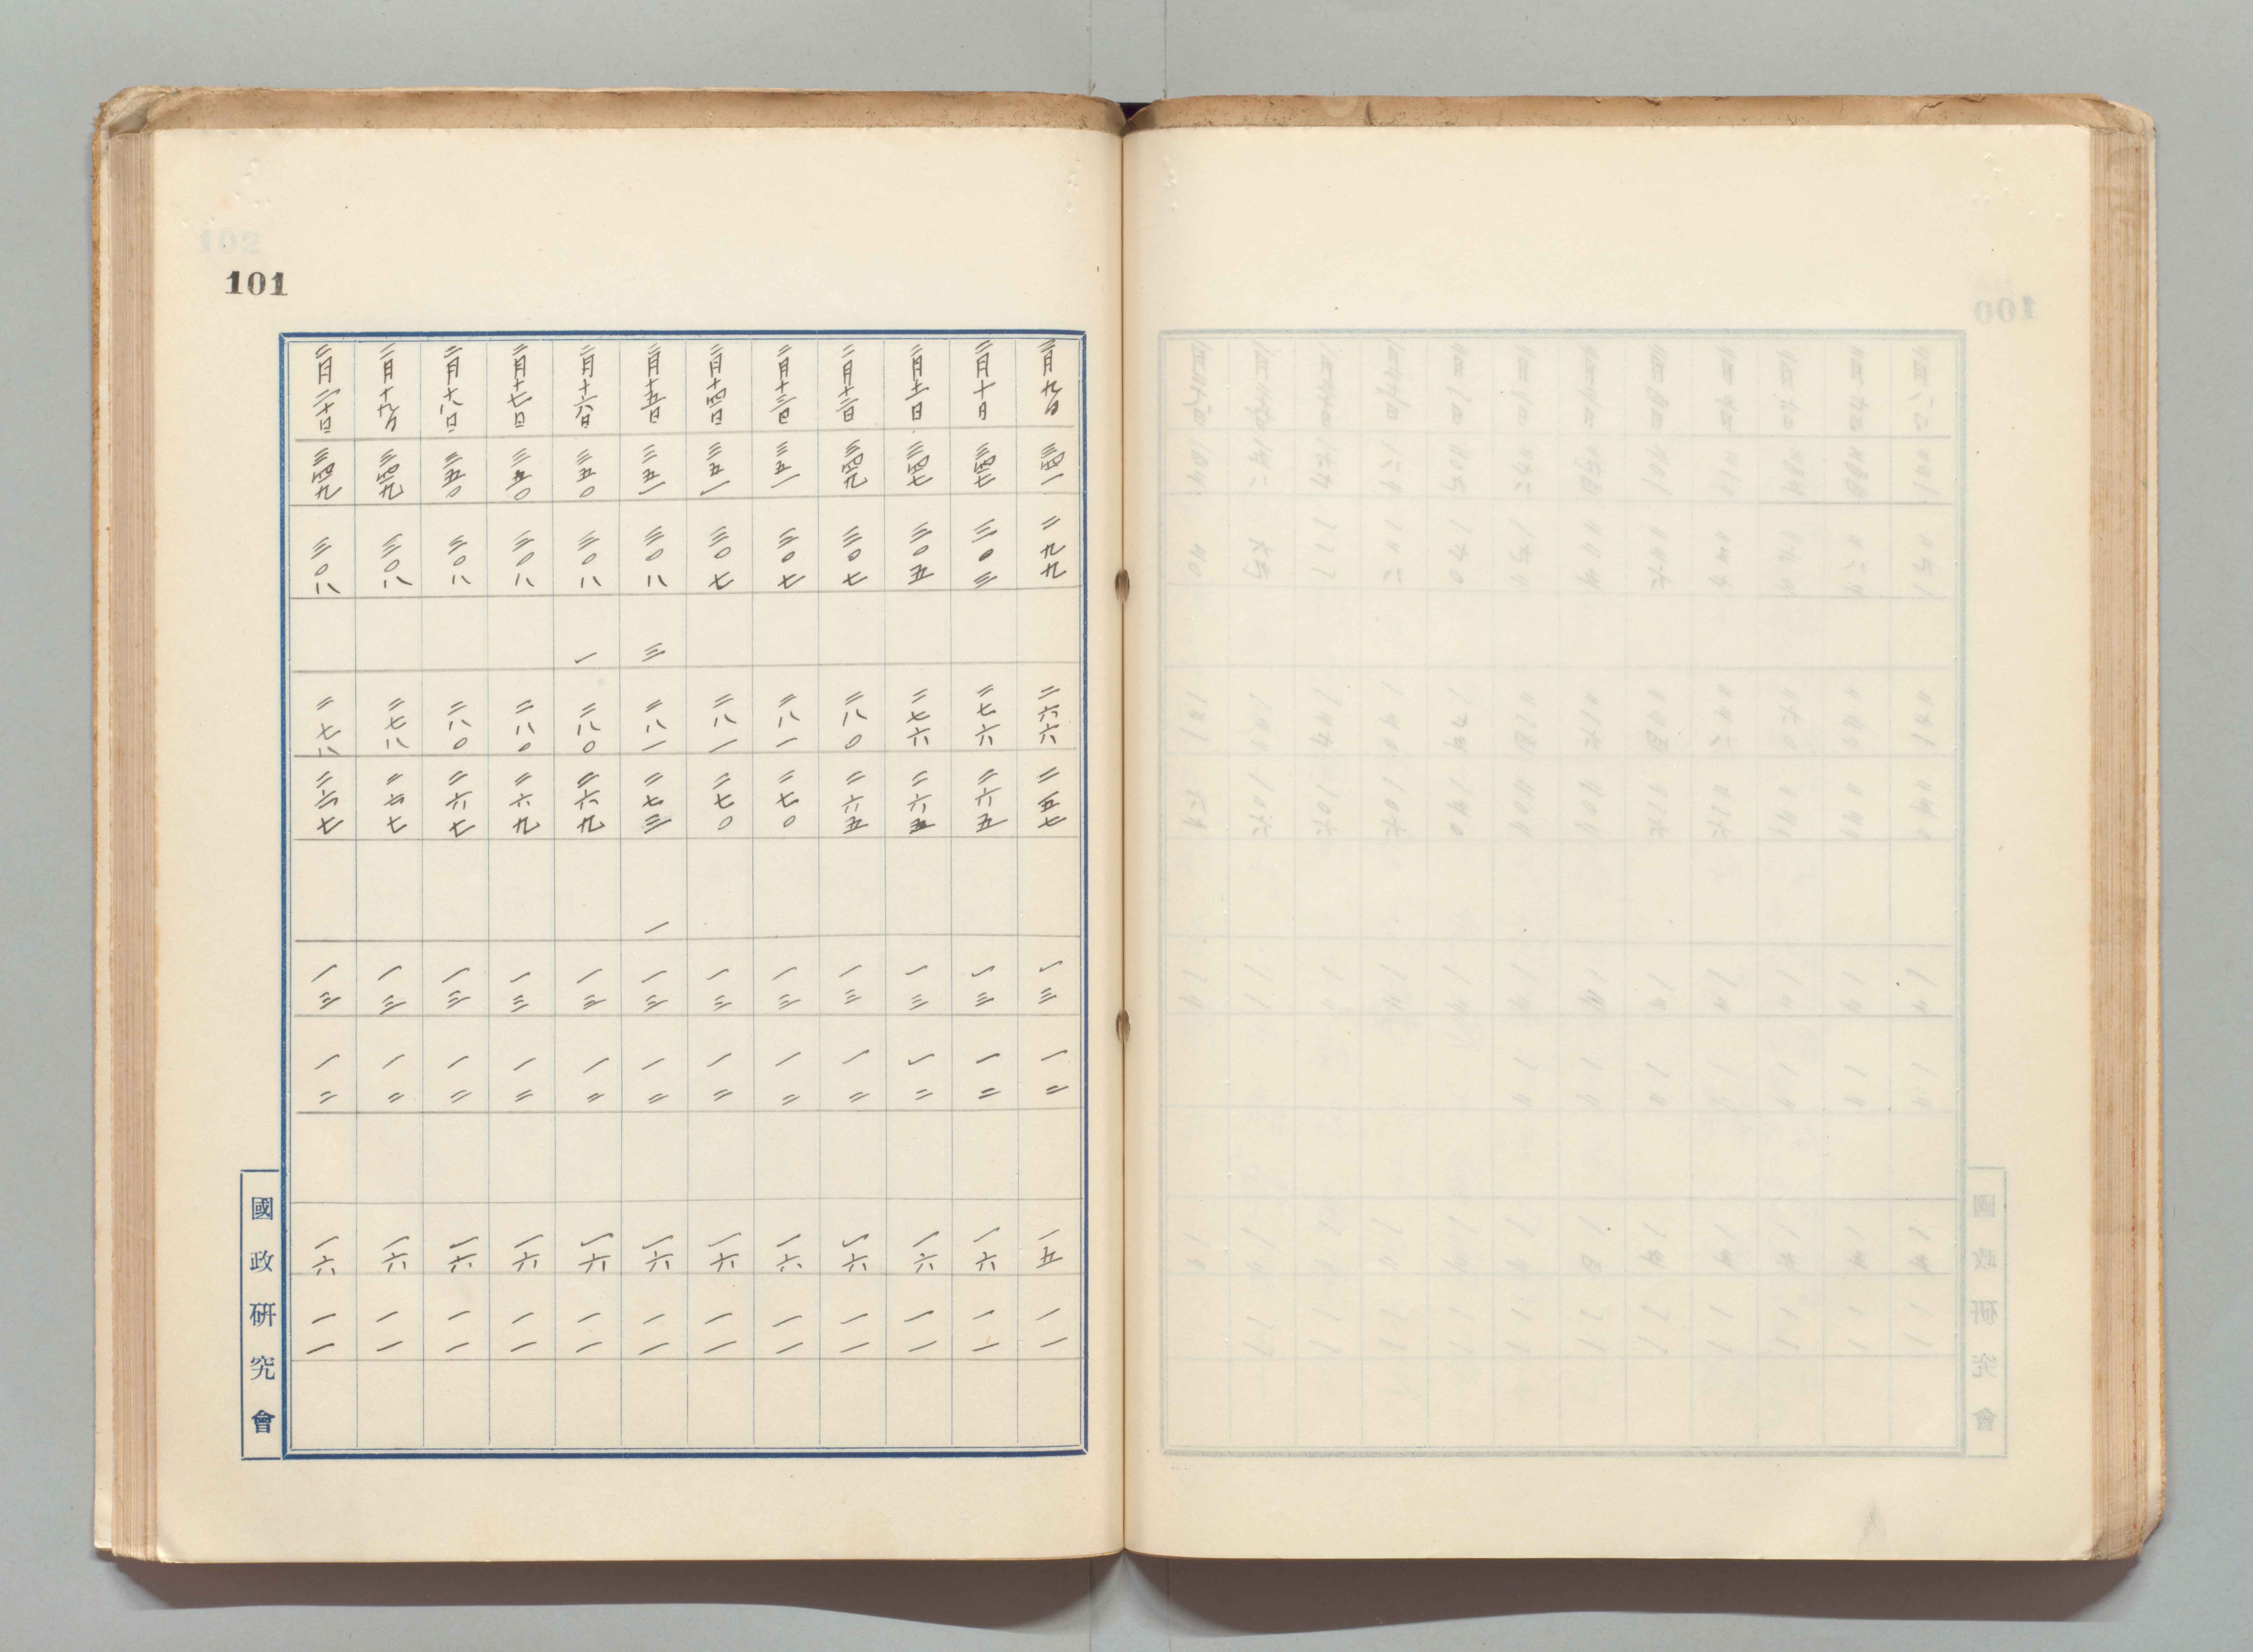 101
二月九日 三四一 二九九 二六六 二五七 一三 一二 一五 一一
二月十日 三四七 三〇三 二七六 二六五 一三 一二 一六 一一
二月十一日 三四七 三〇五 二七六 二六五 一三 一二 一六 一一
二月十二日 三四九 三〇七 二八〇 二六五 一三 一二 一六 一一
二月十三日 三五一 三〇七 二八一 二七〇 一三 一二 一六 一一
二月十四日 三五一 三〇七 二八一 二七〇 一三 一二 一六 一一
二月十五日 三五一 三〇八 三 二八一 二七三 一 一三 一二 一六 一一
二月十六日 三五〇 三〇八 一 二八〇 二六九 一三 一二 一六 一一
二月十七日 三五〇 三〇八 二八〇 二六九 一三 一二 一六 一一
二月十八日 三五〇 三〇八 二八〇 二六七 一三 一二 一六 一一
二月十九日 三四九 三〇八 二七八 二六七 一三 一二 一六 一一
二月二十日 三四九 三〇八 二七八 二六七 一三 一二 一六 一一
國政研究會